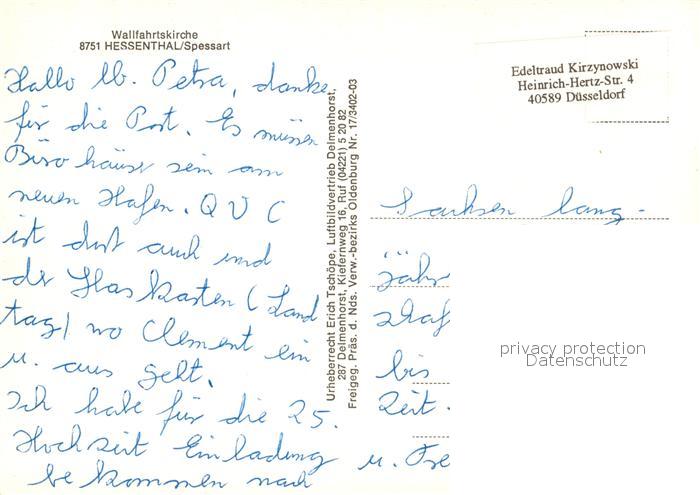 Wallfahrtskirche
8751 HESSENTHAL/Spessart
Hallo lb. Petra, danke
für die Post. Es müssen
Büro häuser sein am
neuen Hafen. QVC
ist dort auch und
der Glas Kasten (Land
tag) wo Clement ein
u. aus geht.
Ich habe für die 25.
Hochzeit Einladung
be kommen nach
Urheberrecht Erich Tschöpe, Luftbildvertrieb Delmenhorst,
287 Delmenhorst, Kiefernweg 16, Ruf (04221) 5 20 82
Freigeg. Präs. d. Nds. Verw.-bezirks Oldenburg Nr. 17/3402-03
Edeltraud Kirzynowski
Heinrich-Hertz-Str. 4
40589 Düsseldorf
Sachsen lang-
jähr
schaf
bis
Zeit.
u. Fre
privacy protection
Datenschutz